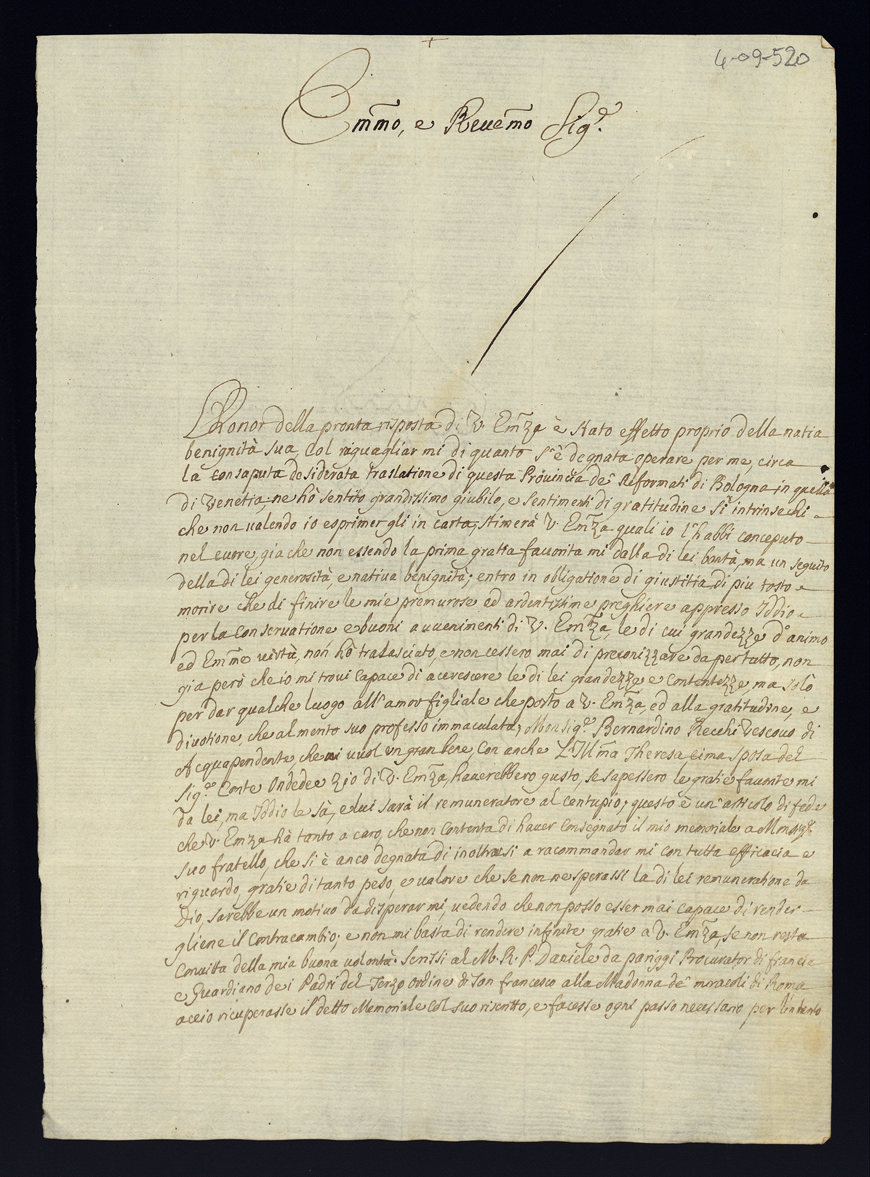 4-09-520
Em̃mo, e Reue̅mo Sig.r
L'Honor della pronta risposta di V. Em̃za è stato effetto proprio della natia
benignità sua, Col raguagliar mi di quanto s'è degnata operare per me, circa
la Consaputa desiderata traslatione di questa Prouincia de' Reformati di Bologna in quella
di Venetia, ne hò sentito grandissimo giubilo, e sentimenti di gratitudine sì intrinsechi
che non ualendo io esprimergli in carta, stimerà V. Em̃za quali io l'habbi conceputo
nel cuore, gia che non essendo la prima gratia fauorita mi dalla di lei bontà, ma un seguito
della di lei generosità, e natiua benignità; entro in obligatione di giustitia di piu tosto
morire che di finire le mie premurose ed ardentissime preghiere appresso Iddio
per la Conseruatione e buoni auuenimenti di V. Em̃za, le di cui grandezze d'animo
ed Em̃me uirtù, non hò tralasciato, e non cessero mai di preconizzare da per tutto, non
gia però che io mi troui capace di accrescere le di lei grandezze e Contentezze, ma solo
per dar qualche luogo all'amor figliale che porto a V. Em̃za, ed alla gratitudine, e
diuotione, che al merito suo professo immaculata; Monsig.r Bernardino Recchi Vescouo di
Acquapendente, che mi uuol un gran bene, Con anche L'Ill̃ma Theresa Cima sposa del
Sig.r Conte Ondedee zio di V. Em̃za, hauerebbero gusto, se sapessero le gratie fauorite mi
da lei, ma Iddio le sà, e lui sarà il remuneratore al centuplo; questo è un articolo di fede
che V. Em̃za hà tanto a caro, che non contenta di hauer Consegnato il mio memoriale a Monsig.r
suo fratello, che si è anco degnata di inoltrarsi a racommandar mi con tutta efficacia e
riguardo, gratie di tanto peso, e ualore che se non ne sperassi la di lei remuneratione da
Dio sarebbe un motiuo da disperar mi, uedendo che non posso esser mai capace di render
gliene il Contracambio; e non mi basta di rendere infinite gratie a V. Em̃za, se non resta
Conuitta della mia buona uolontà. Scrissi al M. R. P. Daniele da pariggi Procurator di francie
e Guardiano dei Padri del Terzo ordine di San francesco alla Madonna de' miracoli di Roma
accio ricuperasse il detto Memoriale Col suo riscritto, e facesse ogni passo necessario per l'intento